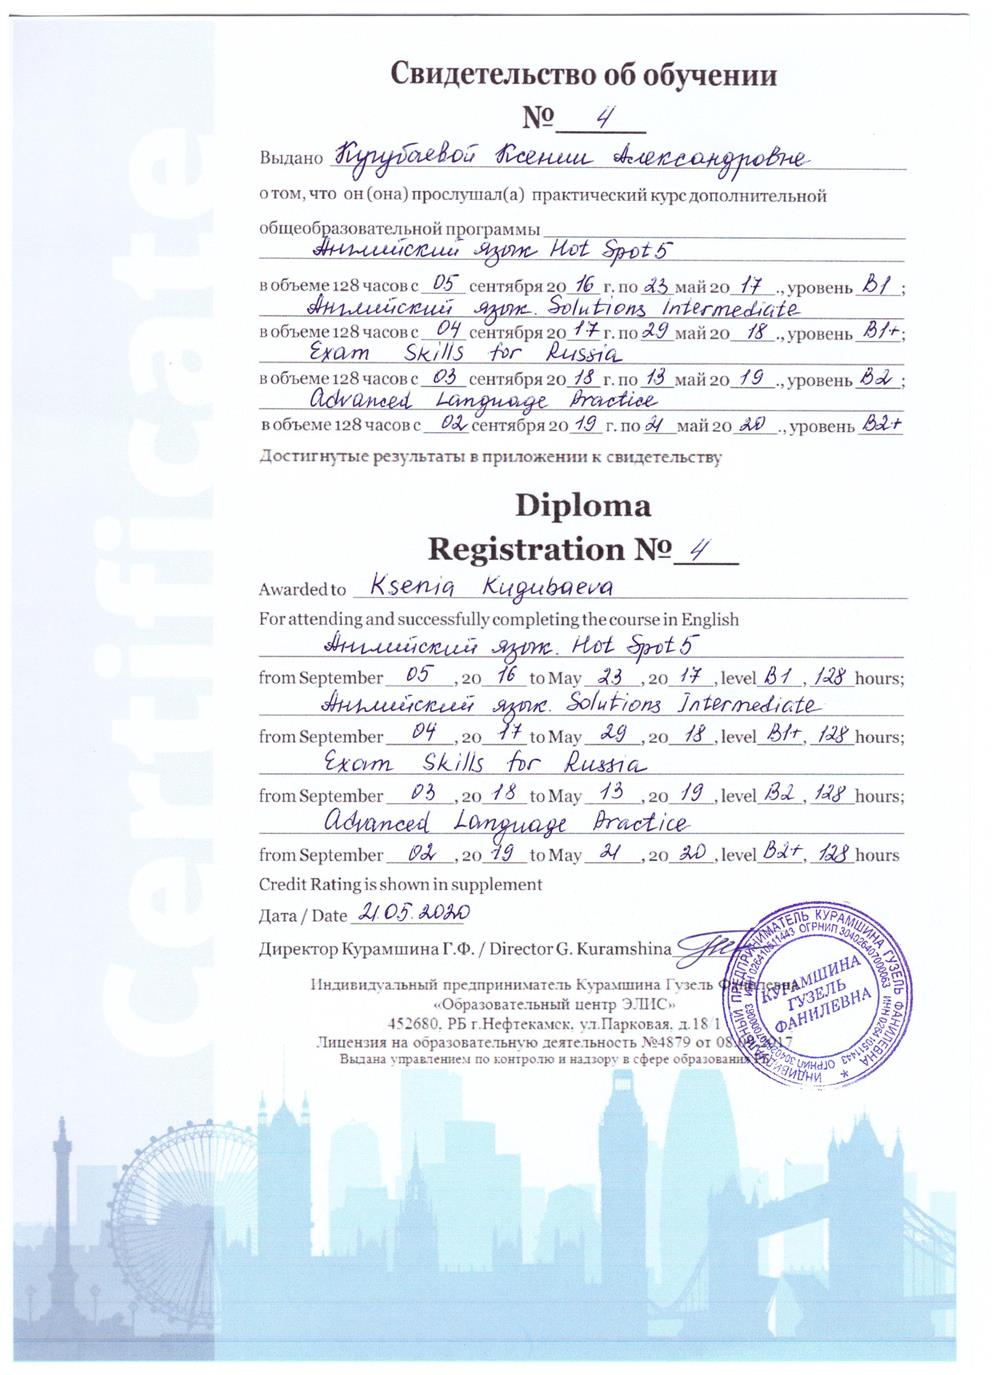 Certificate
Свидетельство об обучении
№ 4
Выдано Кугубаевой Ксении Александровне
о том, что он (она) прослушал(а) практический курс дополнительной
общеобразовательной программы
Английский язык Hot Spot 5
в объеме 128 часов с 05 сентября 20 16 г. по 23 май 20 17 ., уровень B1 ;
Английский язык. Solutions Intermediate
в объеме 128 часов с 04 сентября 20 17 г. по 29 май 20 18 ., уровень B1+;
Exam Skills for Russia
в объеме 128 часов с 03 сентября 20 18 г. по 13 май 20 19 ., уровень B2 ;
Advanced Language Practice
в объеме 128 часов с 02 сентября 20 19 г. по 21 май 20 20 ., уровень B2+
Достигнутые результаты в приложении к свидетельству
Diploma
Registration № 4
Awarded to Ksenia Kugubaeva
For attending and successfully completing the course in English
Английский язык. Hot Spot 5
from September 05 , 20 16 to May 23 , 20 17 , level B1 , 128 hours;
Английский язык. Solutions Intermediate
from September 04 , 20 17 to May 29 , 20 18 , level B1+, 128 hours;
Exam Skills for Russia
from September 03 , 20 18 to May 13 , 20 19 , level B2 , 128 hours;
Advanced Language Practice
from September 02 , 20 19 to May 21 , 20 20 , level B2+, 128 hours
Credit Rating is shown in supplement
Дата / Date 21.05.2020
Директор Курамшина Г.Ф. / Director G. Kuramshina
Индивидуальный предприниматель Курамшина Гузель Фанилевна
«Образовательный центр ЭЛИС»
452680, РБ г.Нефтекамск, ул.Парковая, д.18/1
Лицензия на образовательную деятельность №4879 от 08. 2017
Выдана управлением по контролю и надзору в сфере образования РБ
ИНДИВИДУАЛЬНЫЙ ПРЕДПРИНИМАТЕЛЬ КУРАМШИНА ГУЗЕЛЬ ФАНИЛЕВНА *
ИНН 026410511443 ОГРНИП 304026407000063 ИНН 026410511443 ОГРНИП 304026407000063
КУРАМШИНА
ГУЗЕЛЬ
ФАНИЛЕВНА